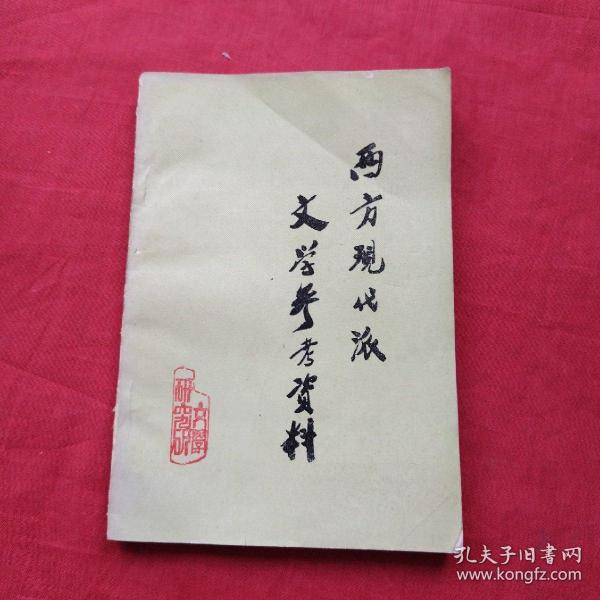 西方现代派
文学参考资料
文学
研究所
孔夫子旧书网
www.kongfz.com